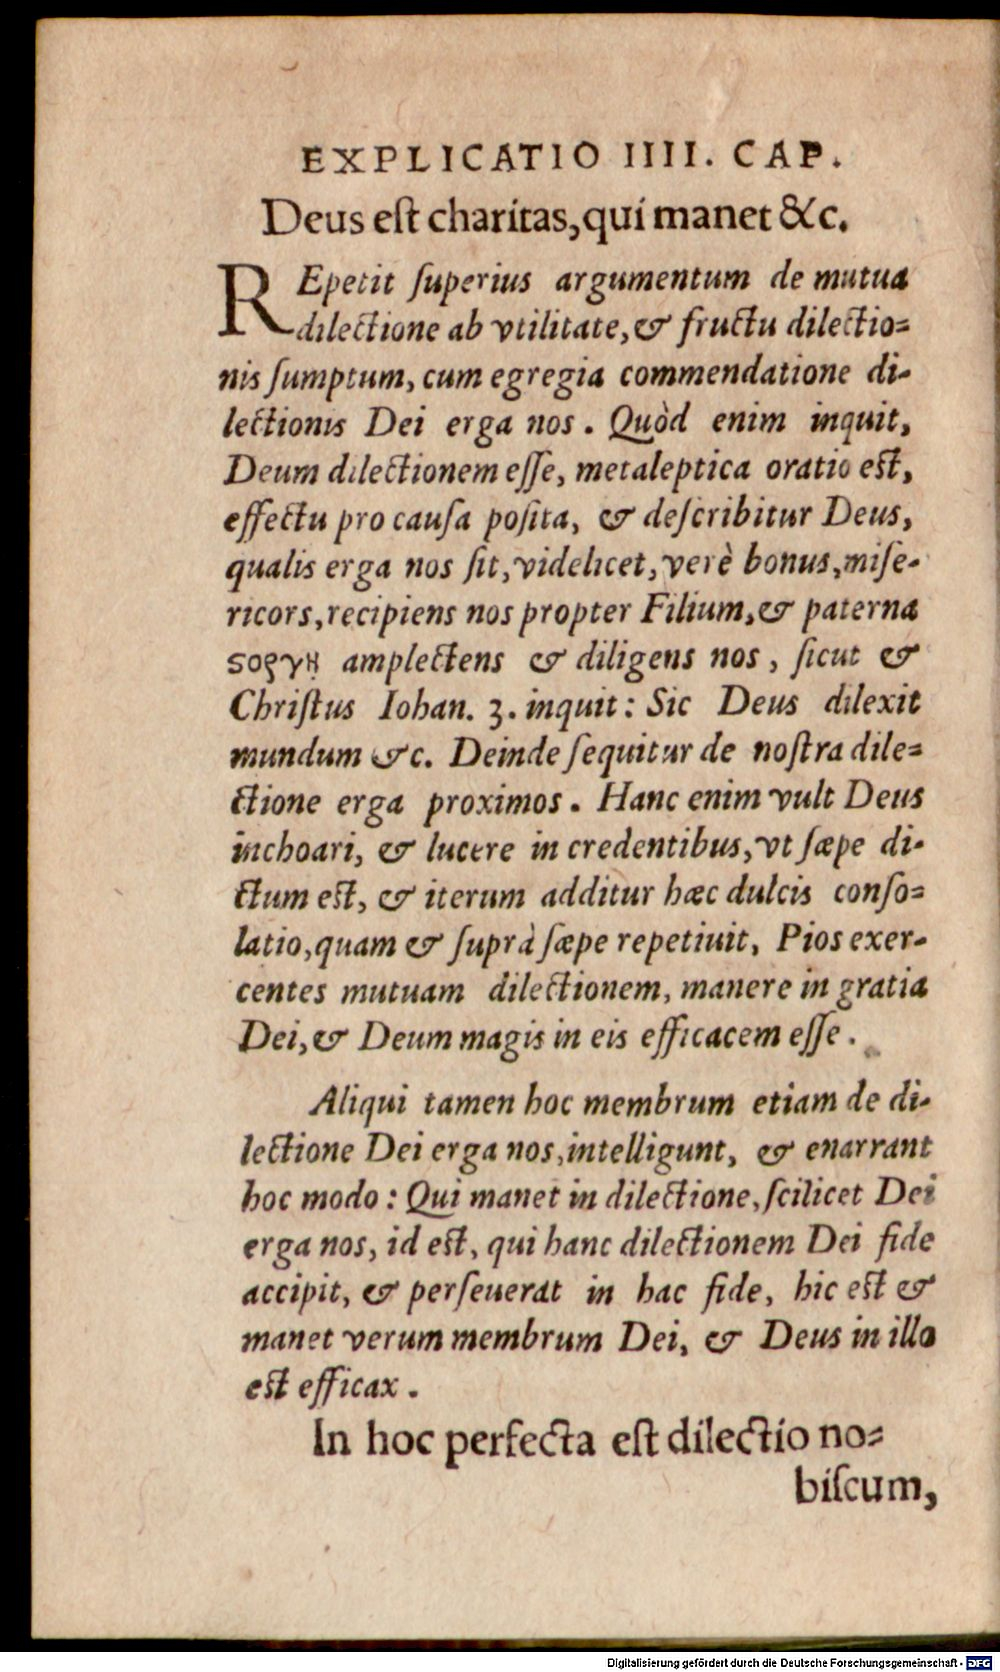 EXPLICATIO IIII. CAP.
Deus eſt charitas, qui manet &c.
REpetit ſuperius argumentum de mutua
dilectione ab vtilitate, & fructu dilectio=
nis ſumptum, cum egregia commendatione di-
lectionis Dei erga nos. Quòd enim inquit,
Deum dilectionem eſſe, metaleptica oratio eſt,
effectu pro cauſa poſita, & deſcribitur Deus,
qualis erga nos ſit, videlicet, verè bonus, miſe-
ricors, recipiens nos propter Filium, & paterna
ϛοργῇ amplectens & diligens nos, ſicut &
Chriſtus Iohan. 3. inquit: Sic Deus dilexit
mundum &c. Deinde ſequitur de noſtra dile=
ctione erga proximos. Hanc enim vult Deus
inchoari, & lucere in credentibus, vt ſæpe di-
ctum eſt, & iterum additur hæc dulcis conſo=
latio, quam & ſuprà ſæpe repetiuit, Pios exer-
centes mutuam dilectionem, manere in gratia
Dei, & Deum magis in eis efficacem eſſe.
Aliqui tamen hoc membrum etiam de di-
lectione Dei erga nos, intelligunt, & enarrant
hoc modo: Qui manet in dilectione, ſcilicet Dei
erga nos, id eſt, qui hanc dilectionem Dei fide
accipit, & perſeuerat in hac fide, hic eſt &
manet verum membrum Dei, & Deus in illo
eſt efficax.
In hoc perfecta eſt dilectio no=
biſcum,
Digitalisierung gefördert durch die Deutsche Forschungsgemeinschaft - DFG